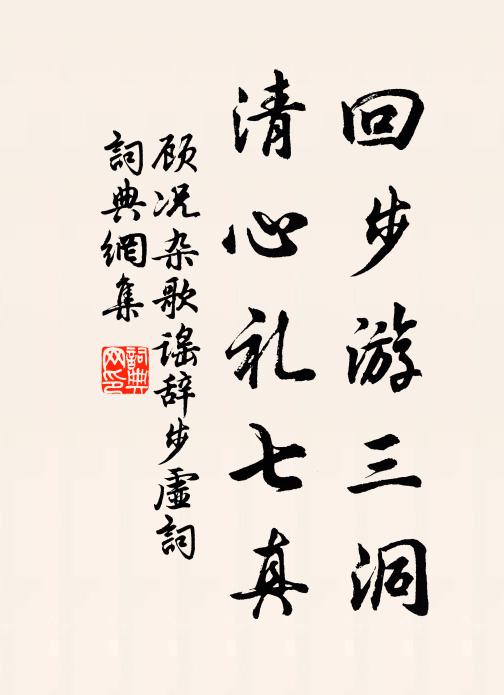 回步游三洞
清心礼七真
顾况杂歌谣辞步虚詞
詞典網集
詞典
网印